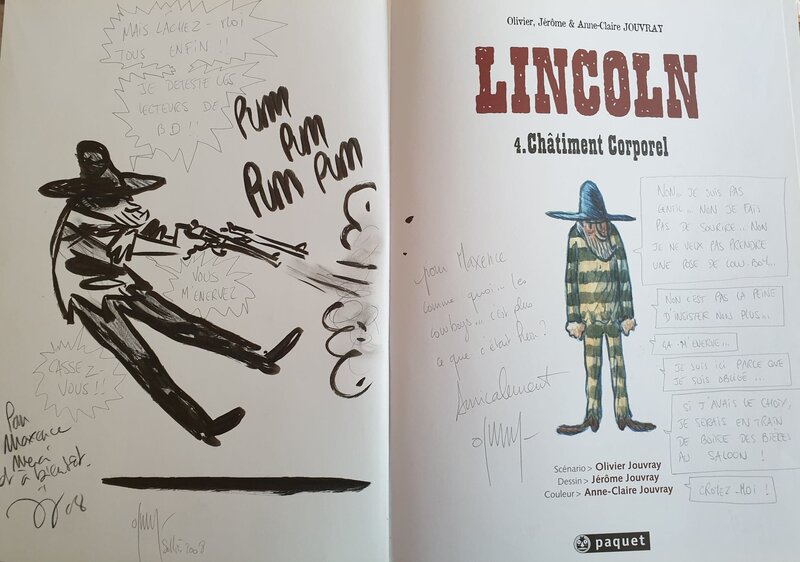 MAIS LACHEZ-MOI
TOUS ENFIN !!
JE DETESTE LES
LECTEURS DE
BD !!
PUM
PUM
PUM PUM
VOUS
M'ENERVEZ
CASSEZ-
VOUS !!
Pour
Maxence
Merci
et à bientôt.
08
2008
Olivier, Jérôme & Anne-Claire JOUVRAY
LINCOLN
4. Châtiment Corporel
NON.. JE SUIS PAS
GENTIL... NON JE FAIS
PAS DE SOURIRE... NON
JE NE VEUX PAS PRENDRE
UNE POSE DE COW-BOY...
NON C'EST PAS ÇA PEINE
D'INSISTER NON PLUS...
ÇA M'ENERVE...
JE SUIS ICI PARCE QUE
JE SUIS OBLIGÉ...
SI J'AVAIS LE CHOIX,
JE SERAIS EN TRAIN
DE BOIRE DES BIÈRES
AU SALOON !
CROYEZ-MOI !
pour Maxence
comme quoi... les
cowboys... c'est plus
ce que c'était hein ?
Amicalement
Scénario > Olivier Jouvray
Dessin > Jérôme Jouvray
Couleur > Anne-Claire Jouvray
paquet